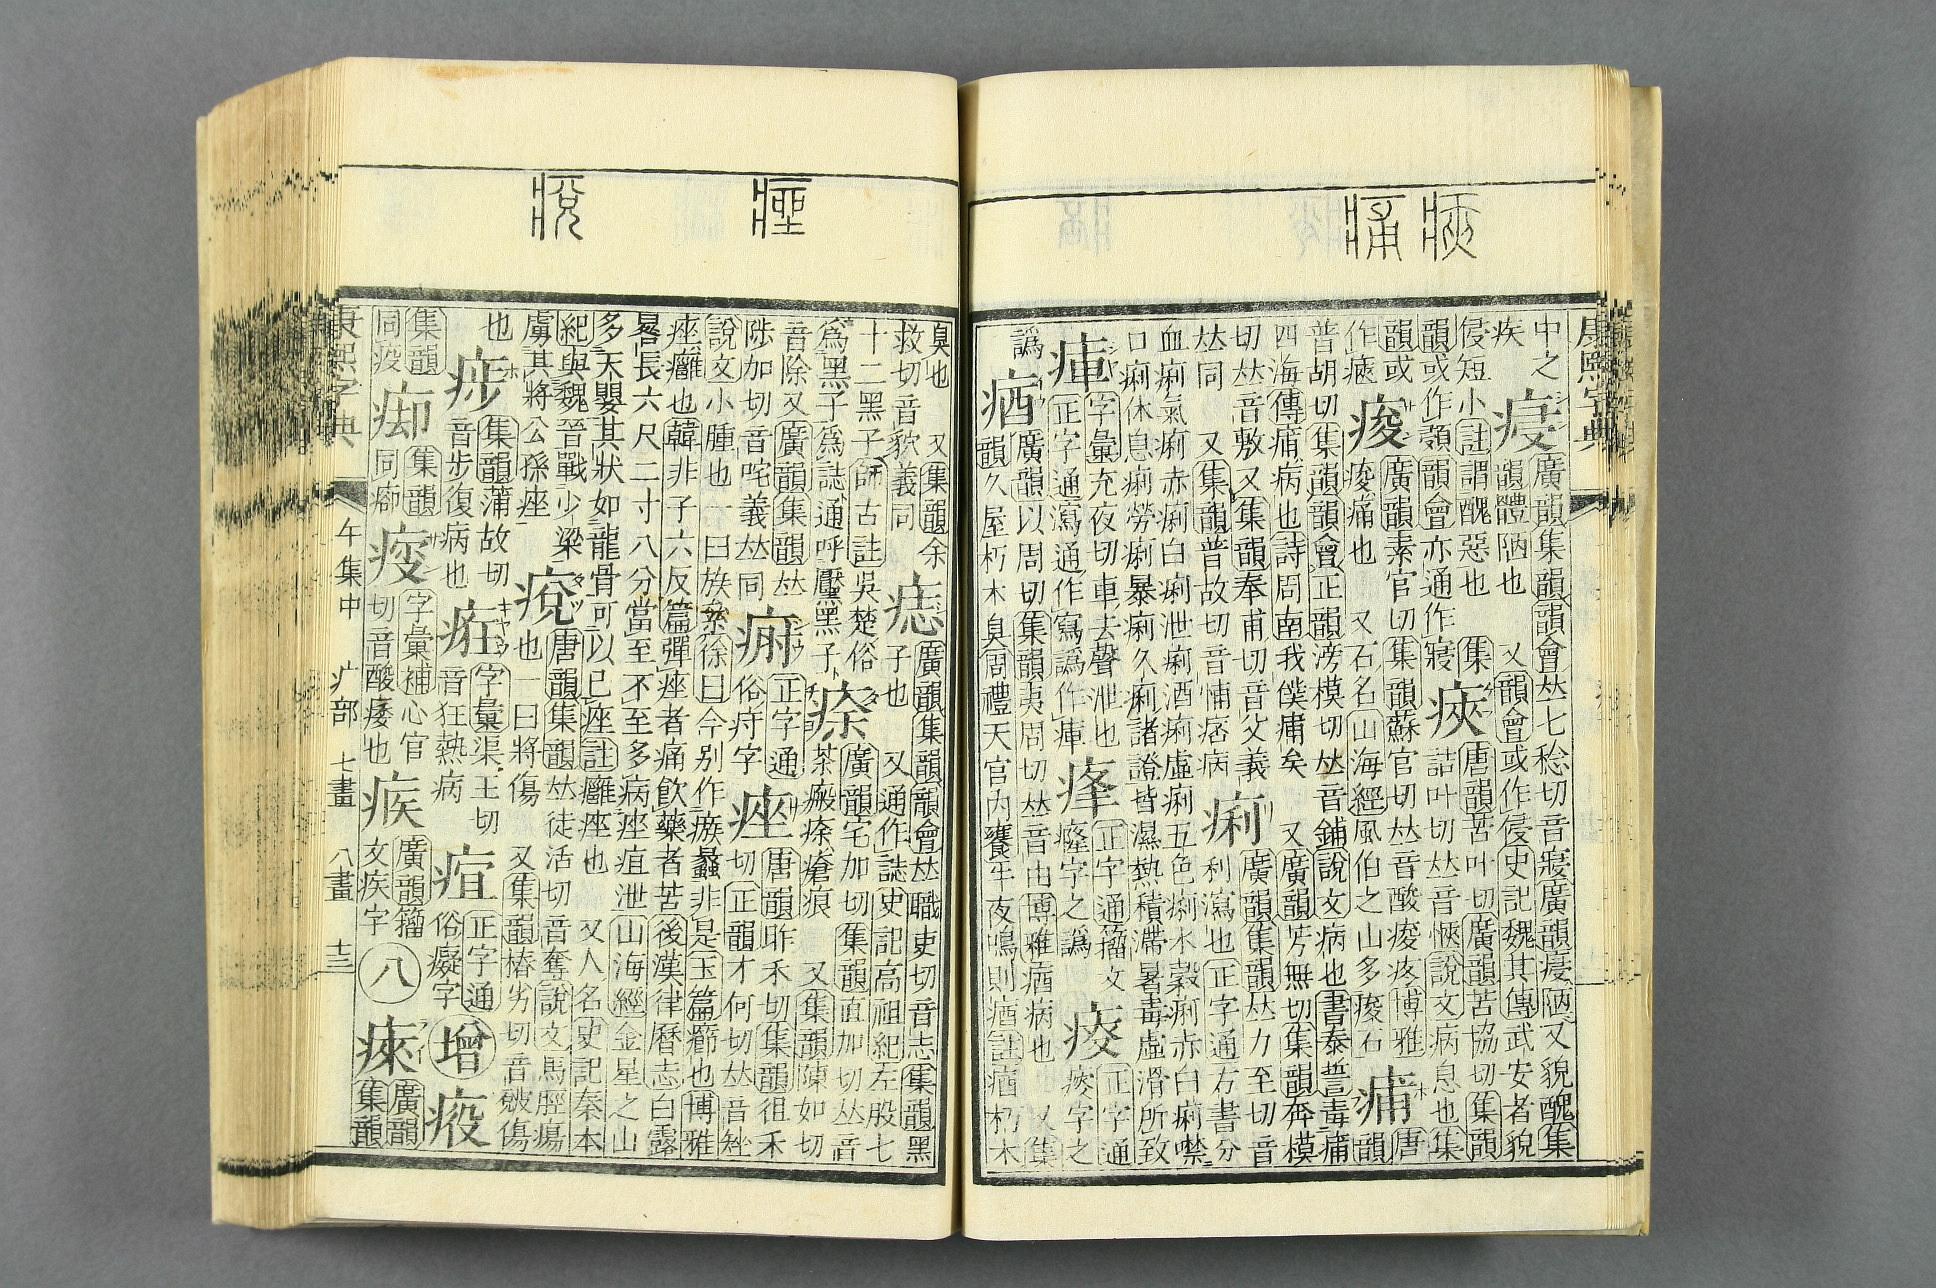 康熙字典
中之㾛廣韻集韻韻會𠀤七稔切音寑廣韻㾛陋又貌醜集
疾 韻體陋也 又韻會或作侵史記魏其傳武安者貌
侵短小註謂醜惡也 集㾜唐韻苦叶切廣韻苦協切集韻
韻或作顩韻會亦通作寢 詰叶切𠀤音愜說文病息也集
韻或痠廣韻素官切集韻蘇官切𠀤音酸痠疼博雅痡唐
作㥦 痠痛也 又石名山海經風伯之山多痠石 韻
普胡切集韻韻會正韻滂模切𠀤音鋪說文病也書泰誓毒痡
四海傳痡病也詩周南我僕痡矣 又廣韻芳無切集韻奔模
切𠀤音敷又集韻奉甫切音父義痢廣韻集韻𠀤力至切音
𠀤同 又集韻普故切音怖痞病 利瀉也正字通方書分
血痢氣痢赤痢白痢泄痢酒痢虛痢五色痢水穀痢赤白痢噤
口痢休息痢勞痢暴痢久痢諸證皆濕熱積滯暑毒虛滑所致
字彙充夜切車去聲泄也 正字通籀文 正字通
正字通瀉通作寫譌作 字之譌 字之
譌㾞廣韻以周切集韻夷周切𠀤音由博雅㾞病也 又集
韻久屋朽木臭周禮天官內饔牛夜鳴則㾞註㾞朽木
臭也 又集韻余痣廣韻集韻韻會𠀤職吏切音志集韻黑
救切音狖義同 子也 又通作誌史記高祖紀左股七
十二黑子師古註吳楚俗 廣韻宅加切集韻直加切𠀤音
爲黑子爲誌通呼黶黑子 茶瘢 瘡痕 又集韻陳如切
音除又廣韻集韻𠀤 正字通痤唐韻昨禾切集韻徂禾
陟加切音咤義𠀤同 俗疛字 切正韻才何切𠀤音矬
說文小腫也一曰族絫徐曰今別作瘯蠡非是玉篇癤也博雅
痤癰也韓非子六反篇彈痤者痛飲藥者苦後漢律曆志白露
晷長六尺二寸八分當至不至多病痤疽泄山海經金星之山
多天嬰其狀如龍骨可以已痤註癰痤也 又人名史記秦本
紀與魏晉戰少梁痥唐韻集韻𠀤徒活切音奪說文馬脛瘍
虜其將公孫座 也一曰將傷 又集韻椿劣切音 傷
也 集韻蒲故切 字彙渠王切 正字通 增
音步復病也 音狂熱病 俗癡字
集韻 集韻 字彙補心官 廣韻籀 八 廣韻
同疫 同 切音酸痿也 文疾字 集韻
康熙字典 午集中 疒部 七畫 八畫 十三